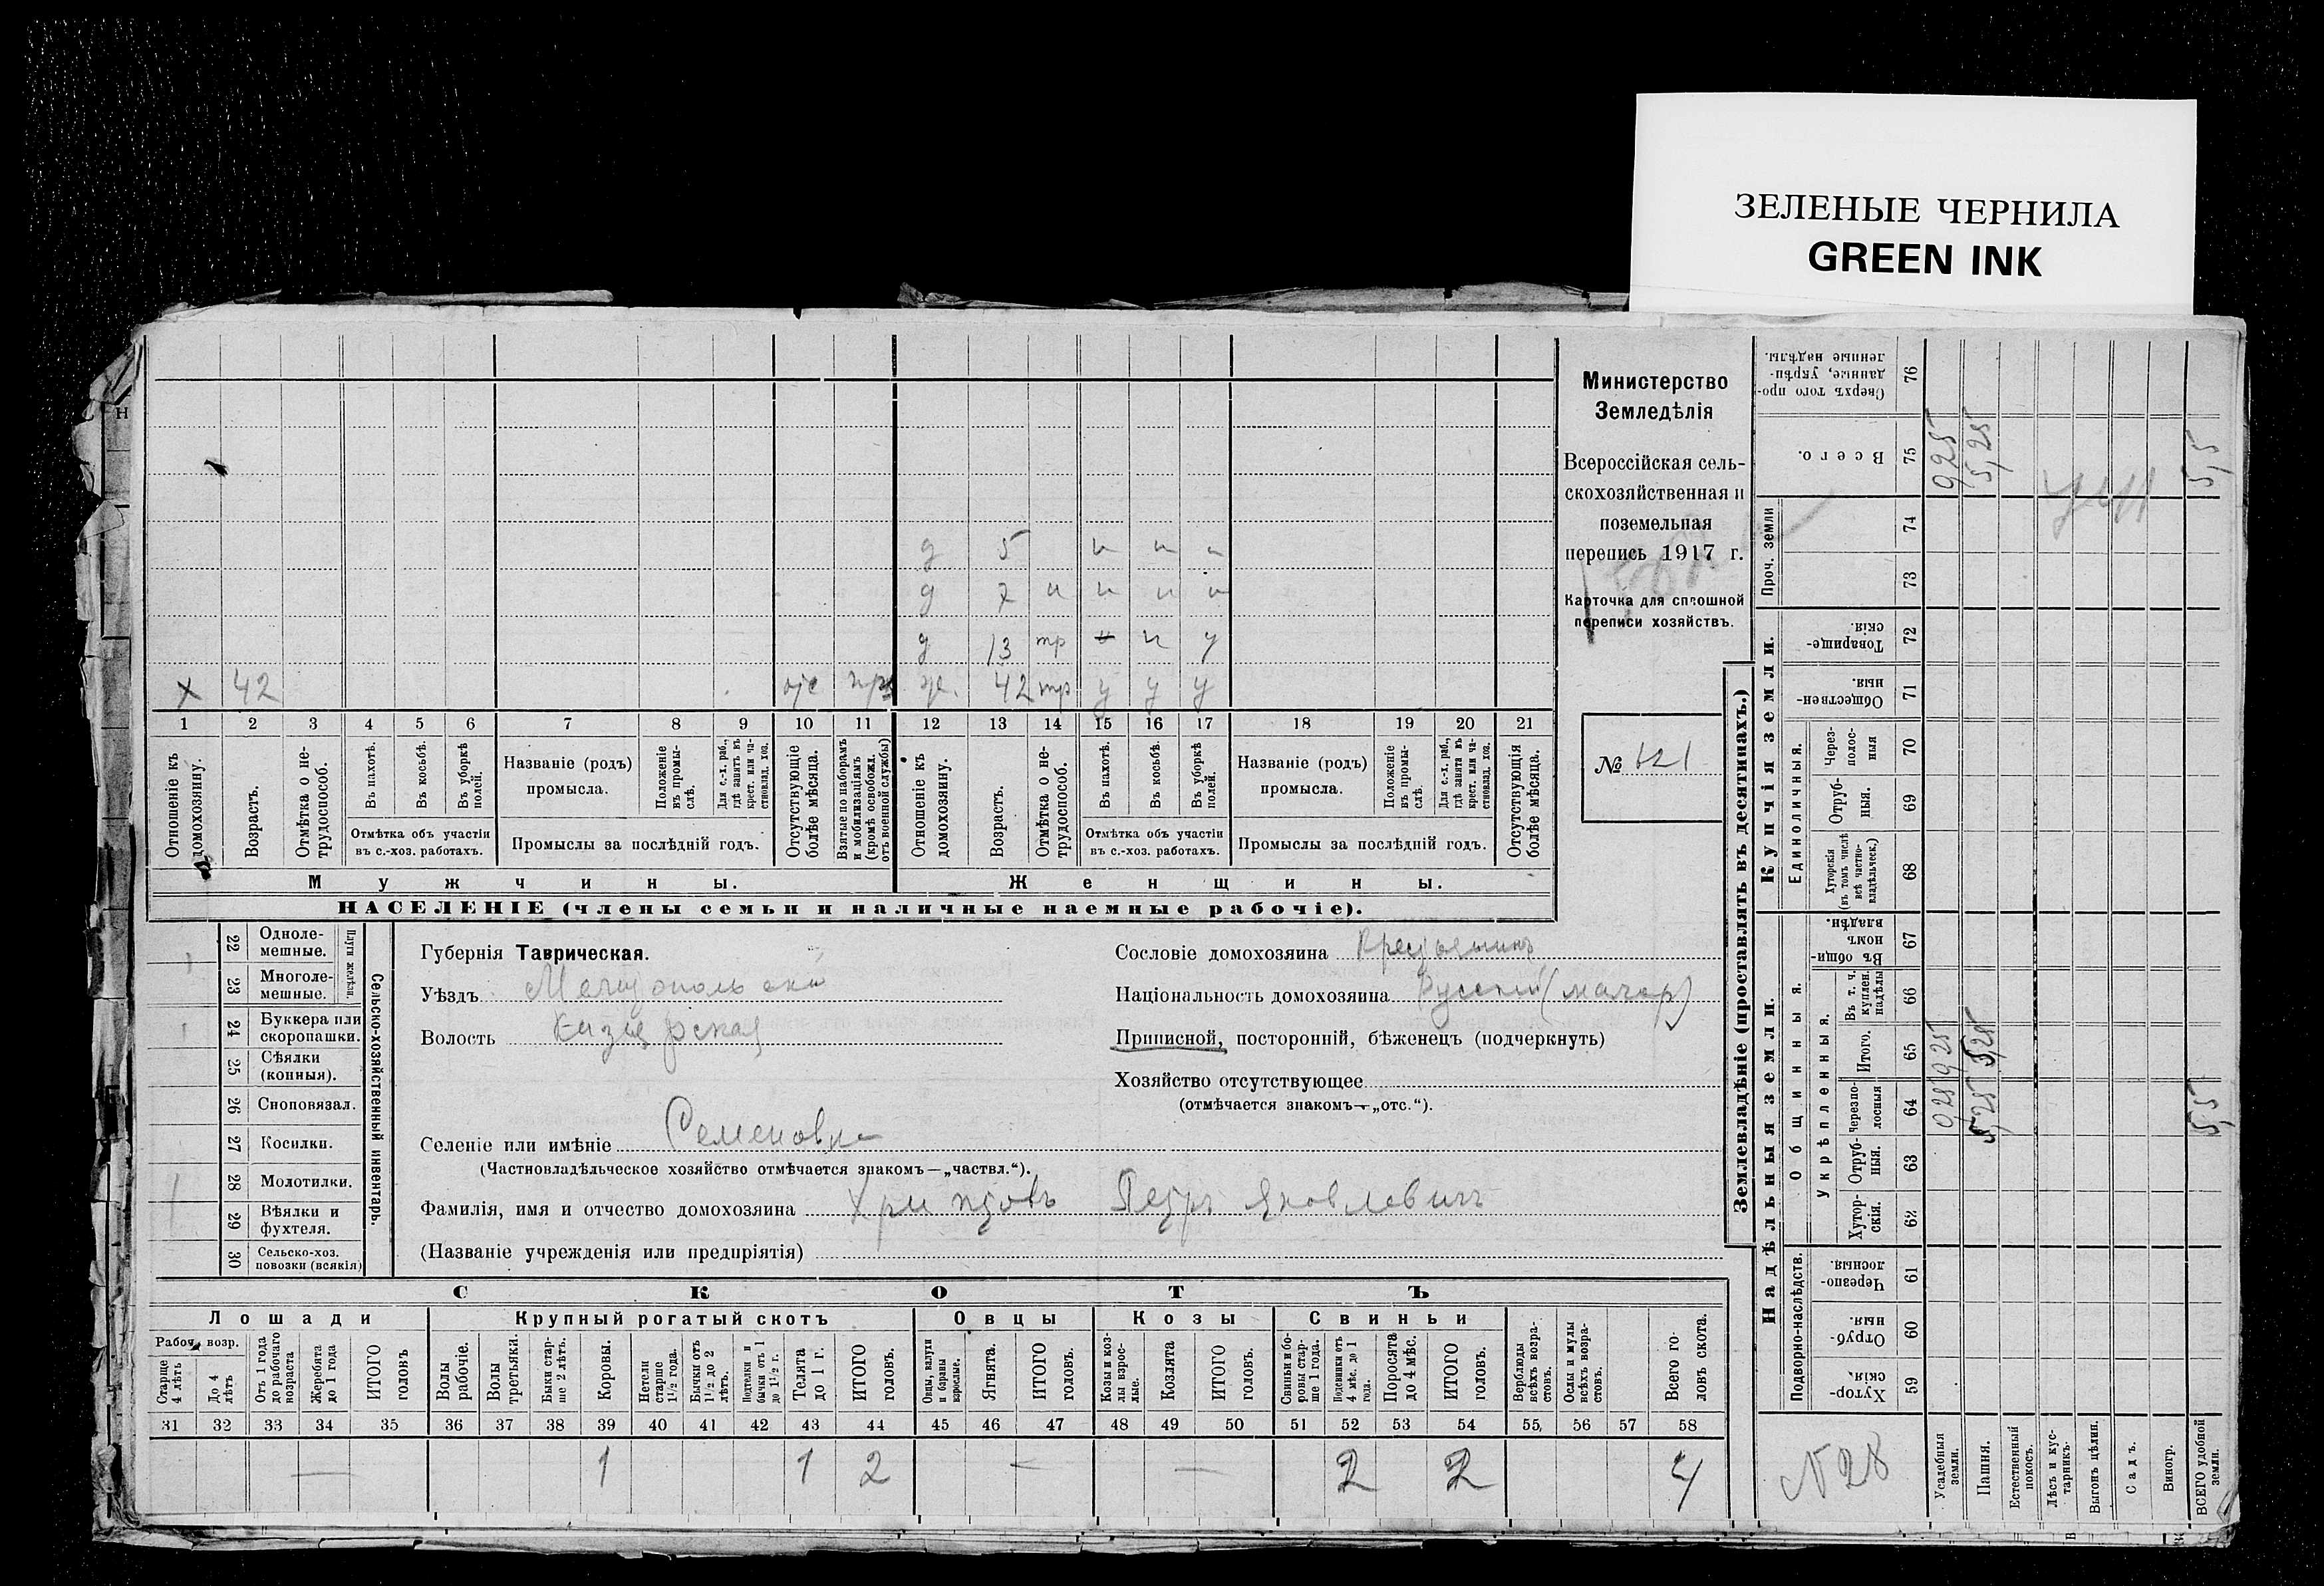 ЗЕЛЕНЫЕ ЧЕРНИЛА
GREEN INK
Министерство
Земледѣлія
Всероссійская сель-
скохозяйственная и
поземельная
перепись 1917 г.
Карточка для сплошной
переписи хозяйствъ.
№ 621
д 5 н н н
д 7 н н н н
д 13 тр н н у
х 42 ж. 42 тр у у у
1 2 3 4 5 6 7 8 9 10 11 12 13 14 15 16 17 18 19 20 21
Отношеніе къ домохозяину.
Возрастъ.
Отмѣтка о не-трудоспособ.
Въ пахотѣ.
Въ косьбѣ.
Въ уборкѣ полей.
Отмѣтка объ участіи
въ с.-хоз. работахъ.
Названіе (родъ)
промысла.
Положеніе въ промы-слѣ.
Для с.-х. раб., гдѣ занятъ въ крест. или ча-стновлад. хоз.
Промыслы за послѣдній годъ.
Отсутствующіе болѣе мѣсяца.
Взятые по наборамъ и мобилизаціямъ (кромѣ освобожд. отъ военной службы)
Отношеніе къ домохозяину.
Возрастъ.
Отмѣтка о не-трудоспособ.
Въ пахотѣ.
Въ косьбѣ.
Въ уборкѣ полей.
Отмѣтка объ участіи
въ с.-хоз. работахъ.
Названіе (родъ)
промысла.
Положеніе въ промы-слѣ.
Для с.-х. раб., гдѣ занята въ крест. или ча-стновлад. хоз.
Промыслы за послѣдній годъ.
Отсутствующія болѣе мѣсяца.
Мужчины.
Женщины.
НАСЕЛЕНІЕ (члены семьи и наличные наемные рабочіе).
22 Одноле-мешные.
23 Многоле-мешные.
Плуги желѣзн.
24 Буккера или скоропашки.
25 Сѣялки (конныя).
26 Сноповязал.
27 Косилки.
28 Молотилки.
29 Вѣялки и фухтеля.
30 Сельско-хоз. повозки (всякія)
Сельско-хозяйственный инвентарь.
Губернія Таврическая.
Уѣздъ Мелитопольскій
Волость
Сословіе домохозяина Крестьянинъ
Національность домохозяина Русскій
Приписной, посторонній, бѣженецъ (подчеркнуть)
Хозяйство отсутствующее
(отмѣчается знакомъ—„отс.“).
Селеніе или имѣніе Семеновка
(Частновладѣльческое хозяйство отмѣчается знакомъ—„частвл.“).
Фамилія, имя и отчество домохозяина Петръ Яковлевичъ
(Названіе учрежденія или предпріятія)
СКОТЪ
Лошади
Крупный рогатый скотъ
Овцы
Козы
Свиньи
Рабоч. возр.
Старше 4 лѣтъ
До 4 лѣтъ
Отъ 1 года до рабочаго возраста
Жеребята до 1 года
ИТОГО головъ
Волы рабочіе.
Волы третьяки.
Быки стар-ше 2 лѣтъ.
Коровы.
Нетели старше 1½ года.
Бычки отъ 1½ до 2 лѣтъ.
Подтелки и бычки отъ 1 до 1½ г.
Телята до 1 г.
ИТОГО головъ.
Овцы, валухи и бараны взрослые.
Ягнята.
ИТОГО головъ.
Козы и коз-лы взрос-лые.
Козлята
ИТОГО головъ.
Свиньи и бо-ровы стар-ше 1 года.
Подсвинки отъ 4 мѣс. до 1 года.
Поросята до 4 мѣс.
ИТОГО головъ.
Верблюды всѣхъ возра-стовъ.
Ослы и мулы всѣхъ возра-стовъ.
Всего го-ловъ скота.
31 32 33 34 35 36 37 38 39 40 41 42 43 44 45 46 47 48 49 50 51 52 53 54 55 56 57 58
— 1 1 2 — — 2 2 4
Землевладѣніе (проставлять въ десятинахъ.)
Надѣльныя земли.
Купчія земли.
Проч. земли
Подворно-наслѣдств.
Общинныя.
Укрѣпленныя.
Единоличныя.
Хутор-скія. 59
Отруб-ныя. 60
Черезпо-лосныя. 61
Хутор-скія. 62
Отруб-ныя. 63
Черезпо-лосныя 64
Итого. 65
Въ т. ч. куплен. надѣлы 66
Въ общи-номъ владѣн. 67
Хуторскія (въ томъ числѣ всѣ частно-владѣльческ.) 68
Отруб-ныя. 69
Через-полос-ныя 70
Обществен-ныя. 71
Товарище-скія. 72
73
74
Всего. 75
Сверхъ того про-данные, укрѣп-ленные надѣлы. 76
Усадебныя земли. 0,25 0,25 0,25
Пашня. 5,25 5,25 5,25
Естественный покосъ.
Лѣсъ и кус-тарникъ.
Выгонъ цѣлин.
Садъ.
Виногр.
ВСЕГО удобной земли. 5,5 5,5
N 28